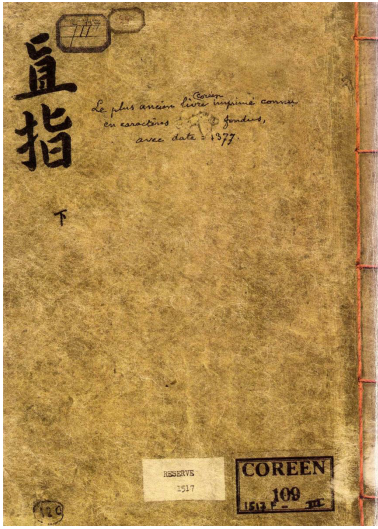 7117
直指
下
Coréen
Le plus ancien livre imprimé connu
en caractères fondus,
avec date = 1377.
RESERVE
1517
COREEN
109